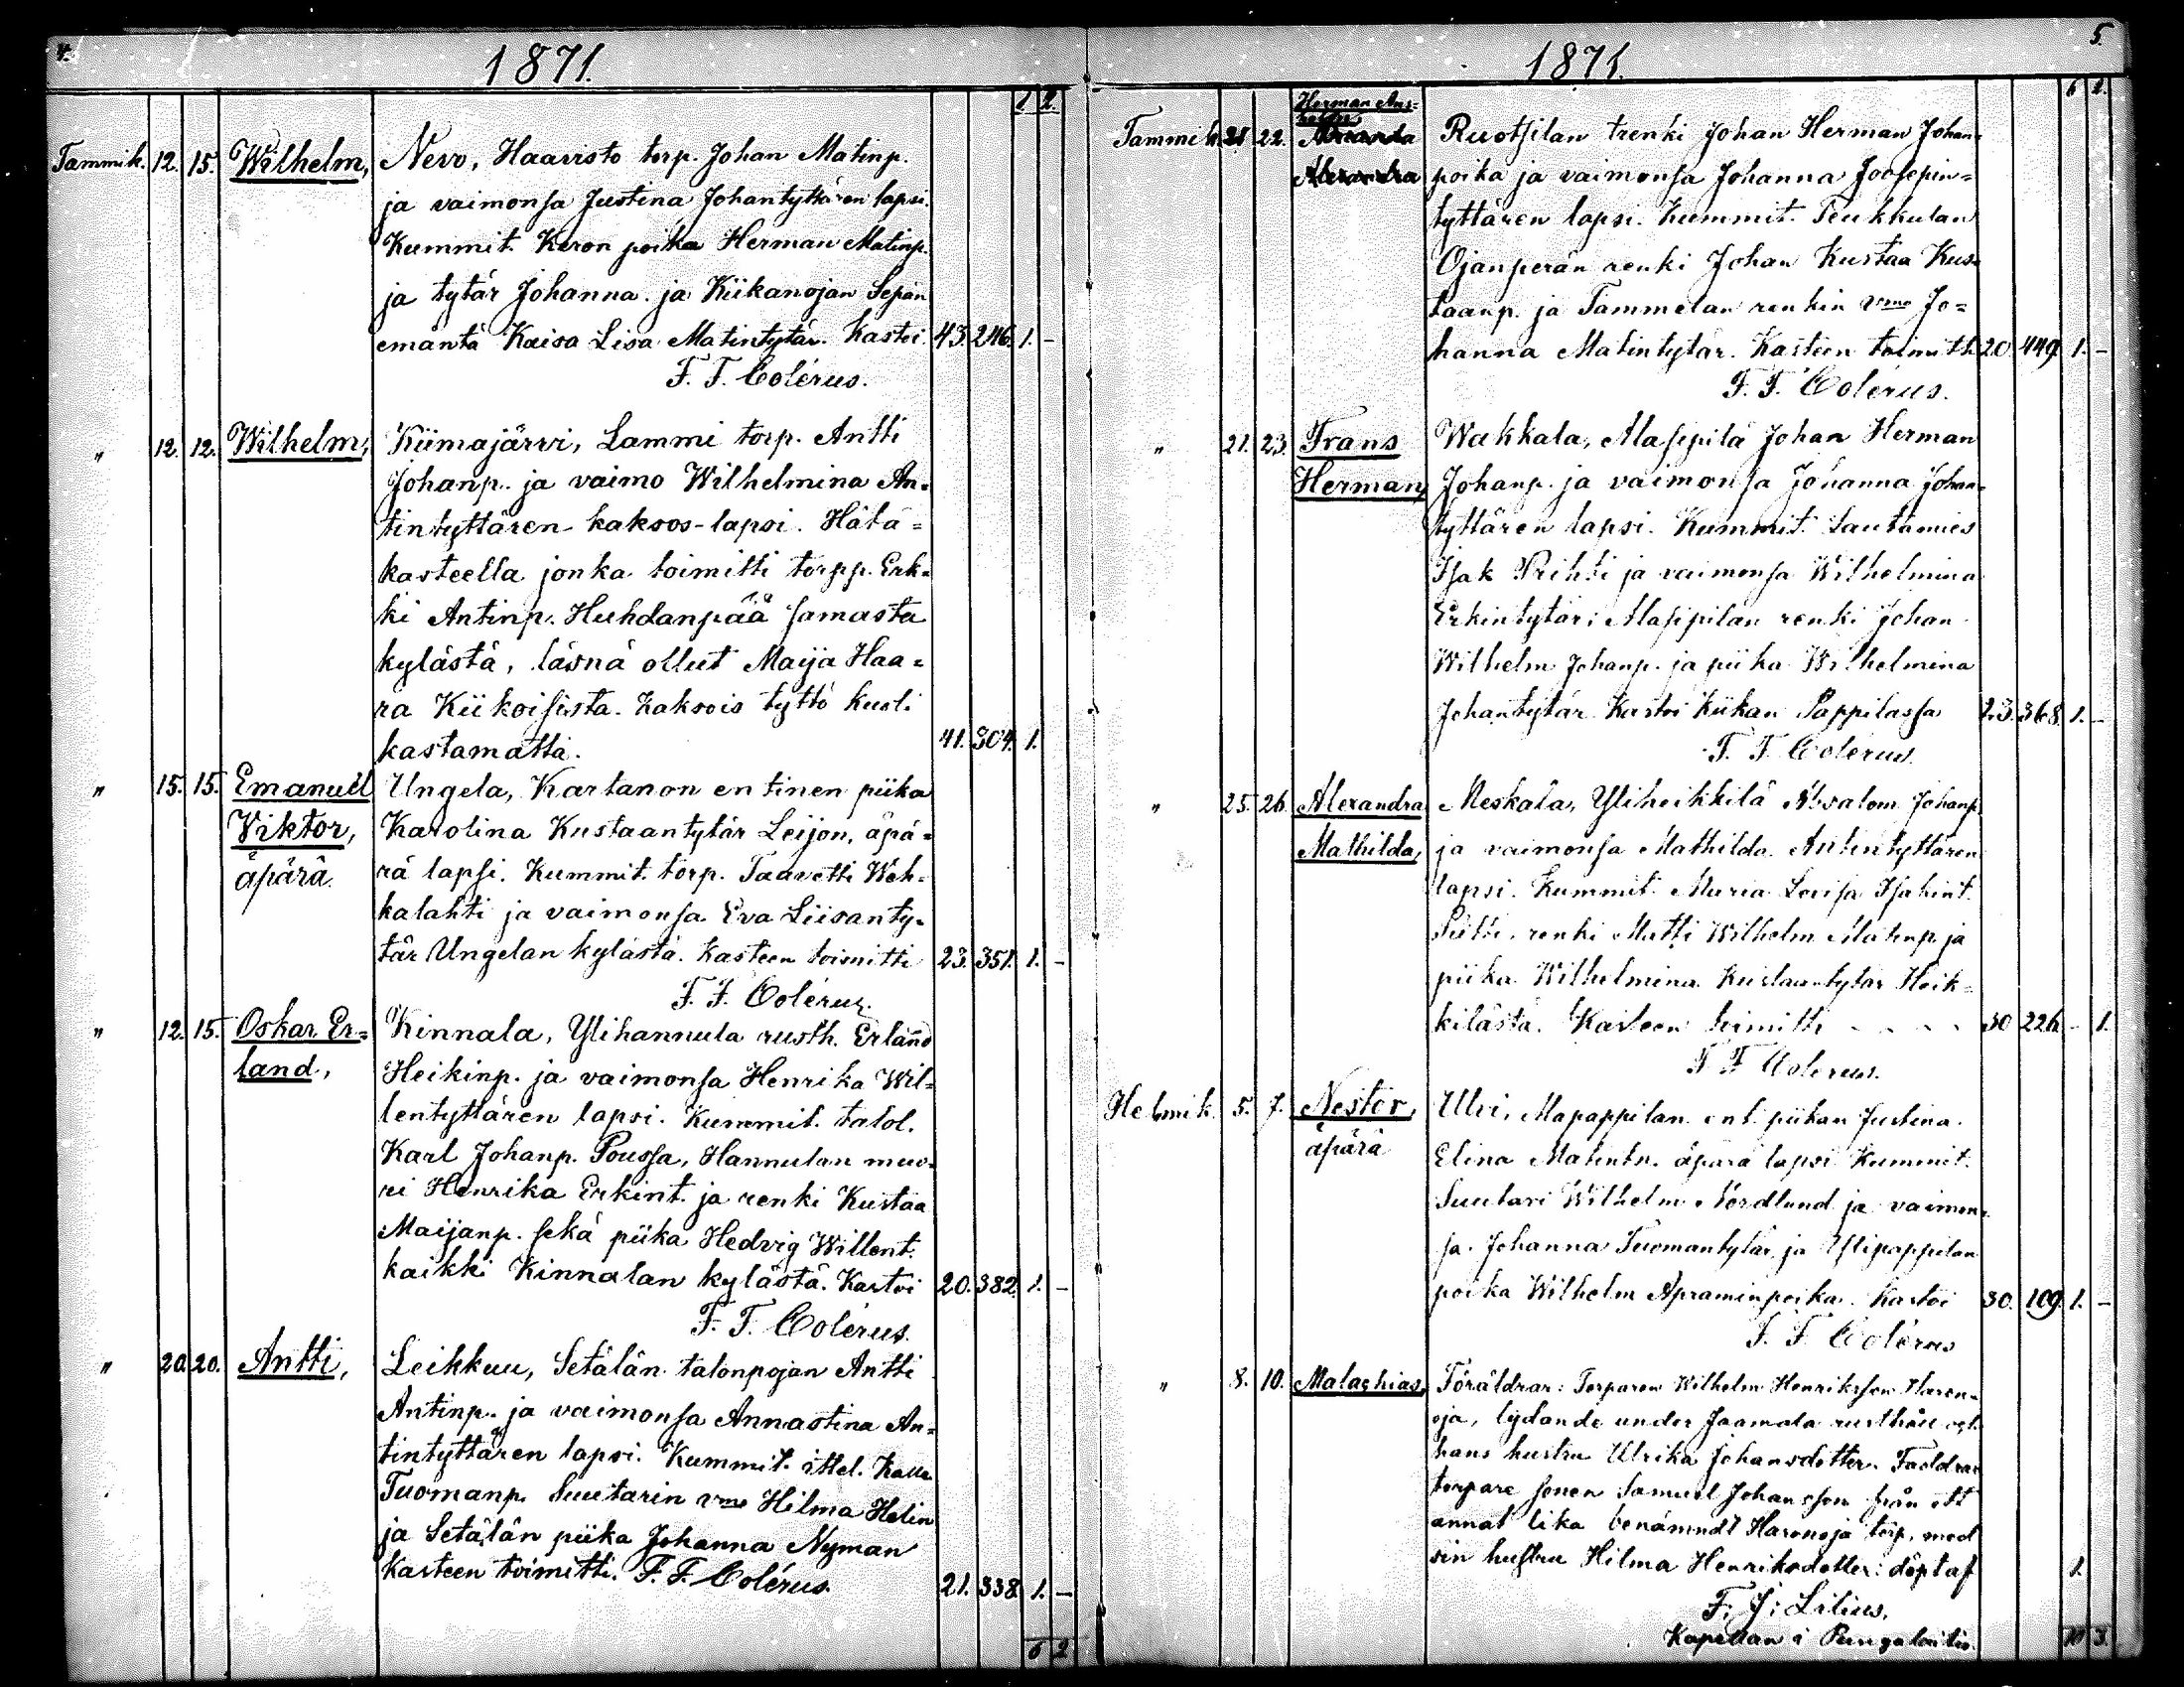 4.
1871.
1 2.
Tammik. 12. 15. Wilhelm, Nevo, Haavisto torp. Johan Matinp.
ja vaimonsa Justina Johantyttären lapsi.
Kummit. Keron poika Herman Matinp.
ja tytär Johanna. ja Kiikanojan Sepän
emäntä Kaisa Lisa Matintytär. Kastoi. 43. 246. 1. -
F. F. Colérus.
" 12. 12. Wilhelm, Kiimajärvi, Lammi torp. Antti
Johanp. ja vaimo Wilhelmina An=
tintyttären kaksos-lapsi. Hätä=
kasteella jonka toimitti torpp. Erk=
ki Antinp. Huhdanpää samasta
kylästä, läsnä ollut Maija Haa=
ra Kiikoisista. Kaksois tyttö kuoli
kastamatta. 41. 304. 1.
" 15. 15. Emanuel Ungela, Kartanon entinen piika
Viktor, Karolina Kustaantytär Leijon, äpä=
äpärä. rä lapsi. Kummit. torp. Taavetti Weh=
kalahti ja vaimonsa Eva Liisanty=
tär Ungelan kylästä. Kasteen toimitti 23. 351. 1. -
F. F. Colérus.
" 12. 15. Oskar Er= Kinnala, Ylihannula rusth. Erland
land, Heikinp. ja vaimonsa Henrika Wil=
lentyttären lapsi. Kummit. talol.
Karl Johanp. Poussa, Hannulan muo=
ri Henrika Erkint. ja renki Kustaa
Maijanp. sekä piika Hedvig Willent.
kaikki Kinnalan kylästä. Kastoi 20. 382. 1. -
F. F. Colérus.
" 20. 20. Antti, Leikkuu, Setälän talonpojan Antti
Antinp. ja vaimonsa Annastina An=
tintyttären lapsi. Kummit. ittel. Kalle
Tuomanp. Suutarin vmo Hilma Helin
ja Setälän piika Johanna Nyman
Kasteen toimitti. F. F. Colérus. 21. 338. 1. -
6 2
5.
1871.
6 2.
Tammik. 21 22. Herman Ans=
Ruotsilan trenki Johan Herman Johan=
Alexandra poika ja vaimonsa Johanna Joosepin=
tyttären lapsi. Kummit. Peukkulan
Ojanperän renki Johan Kustaa Kus=
taanp. ja Tammelan renkin vmo Jo=
hanna Matintytär. Kasteen toimitti 20 449. 1. -
F. F. Colérus.
" 21. 23. Frans Wakkala, Johan Herman
Herman, Johanp. ja vaimonsa Johanna Johan=
tyttären lapsi. Kummit. Lautamies
Isak Prihti ja vaimonsa Wilhelmina
Erkintytär; renki Johan
Wilhelm Johanp. ja piika Wilhelmina
Johantytär. Kastoi Kiikan Pappilassa 23. 368. 1. -
F. F. Colérus.
" 25. 26. Alexandra Meskala, Yliheikkilä Johanp.
Mathilda, ja vaimonsa Mathilda Antintyttären
lapsi. Kummit. Maria Lovisa
renki Matti Wilhelm Matinp. ja
piika Wilhelmina Kustaantytär Heik=
kilästä. Kasteen toimitti - - - - 30 226 - 1.
F. F. Colerus.
Helmik. 5. 7. Nestor, Ulvi, ent. piikan Justina
äpärä Elina Matintn. äpärä lapsi. Kummit.
Suutari Wilhelm Nordlund ja vaimon=
sa Johanna Tuomantytär ja Ylipappilan
poika Wilhelm Apraminpoika. Kastoi 30. 109. 1. -
F. F. Colérus
" 8. 10. Malachias, Föräldrar: Torparen Wilhelm Henriksson Haren=
oja, lydande under Jaamala rusthåll och
hans hustru Ulrika Johansdotter. Faddrar
torpare sonen Samuel Johansson från ett
annat lika benämndt Harenoja torp, med
sin hustru Hilma Henriksdotter: döpt af 1.
F. J: Lilius,
Kapellan i Pungalaitio.
10 3.